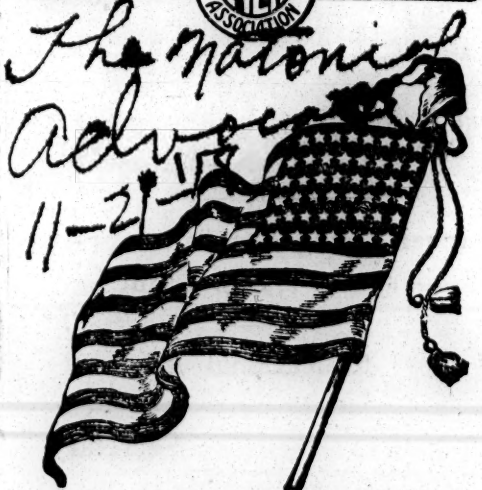 ASSOCIATION
The Natonial
Advocate
11-21-'18